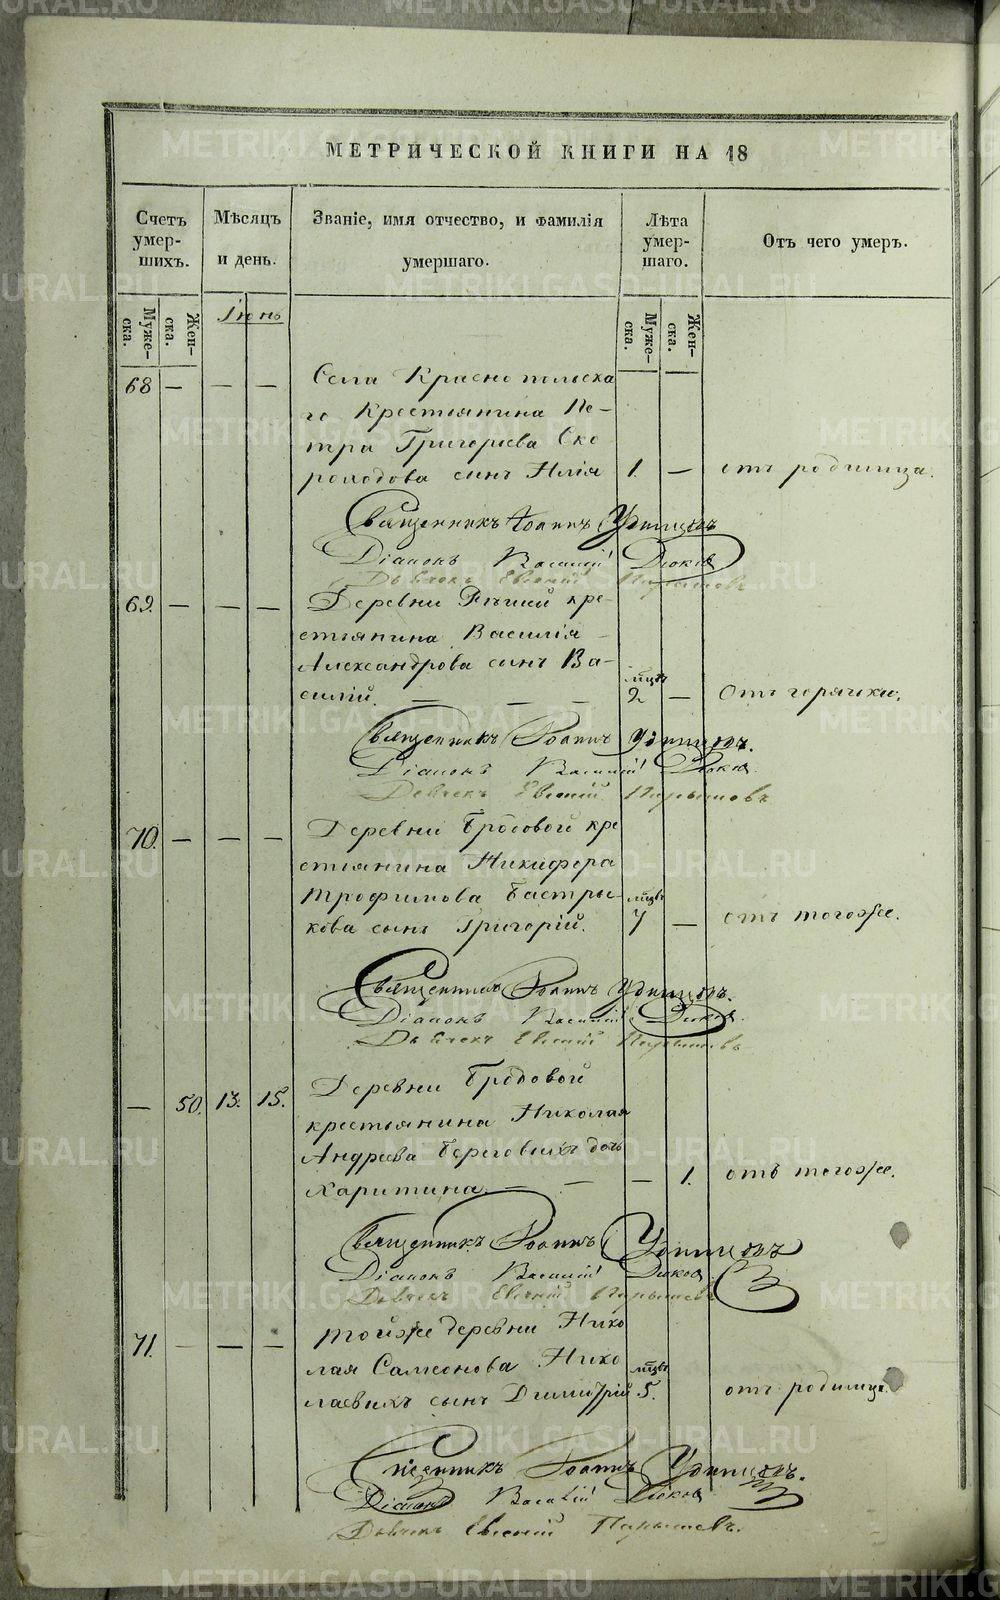 МЕТРИЧЕСКОЙ КНИГИ НА 18
Счетъ умер- шихъ.
Мѣсяцъ и день.
Званіе, имя отчество, и фамилія умершаго.
Лѣта умер- шаго.
Отъ чего умеръ.
Муже- ска.
Жен- ска.
Іюнь
Муже- ска.
Жен- ска.
68 — — — Села Краснопольска
го крестьянина Пе-
тра Григорьева Ско
роходова сынъ Илія 1. — отъ родимца.
Священникъ Іоаннъ Удинцовъ
Діаконъ Василій Дюковъ
Дьячекъ Евгеній
69. — — — Деревни кре-
стьянина Василія
Александрова сынъ Ва-
силій. — — — мцъ 2 — Отъ горячки.
Священникъ Іоаннъ Удинцовъ.
Діаконъ Василій Дюковъ
Дьячекъ Евгеній
70. — — — Деревни Бродовой кре
стьянина Никифора
Трофимова Бастры-
кова сынъ Григорій. мцвъ 7 — отъ тогоже.
Священникъ Іоаннъ Удинцовъ.
Діаконъ Василій Дюковъ
Дьячекъ Евгеній
— 50. 13. 15. Деревни Бродовой
крестьянина Николая
Андреева Береговыхъ дочь
Харитина. — — — 1. отъ тогоже.
Священникъ Іоаннъ Удинцовъ
Діаконъ Василій Дюковъ
Дьячекъ Евгеній
71. — — — Тойже деревни Нико
лая Самсонова Нико
лаевыхъ сынъ Димитрій мцвъ 5. отъ родимца.
Священникъ Іоаннъ Удинцовъ.
Діаконъ Василій Дюковъ
Дьячекъ Евгеній
METRIKI.GASO-URAL.RU